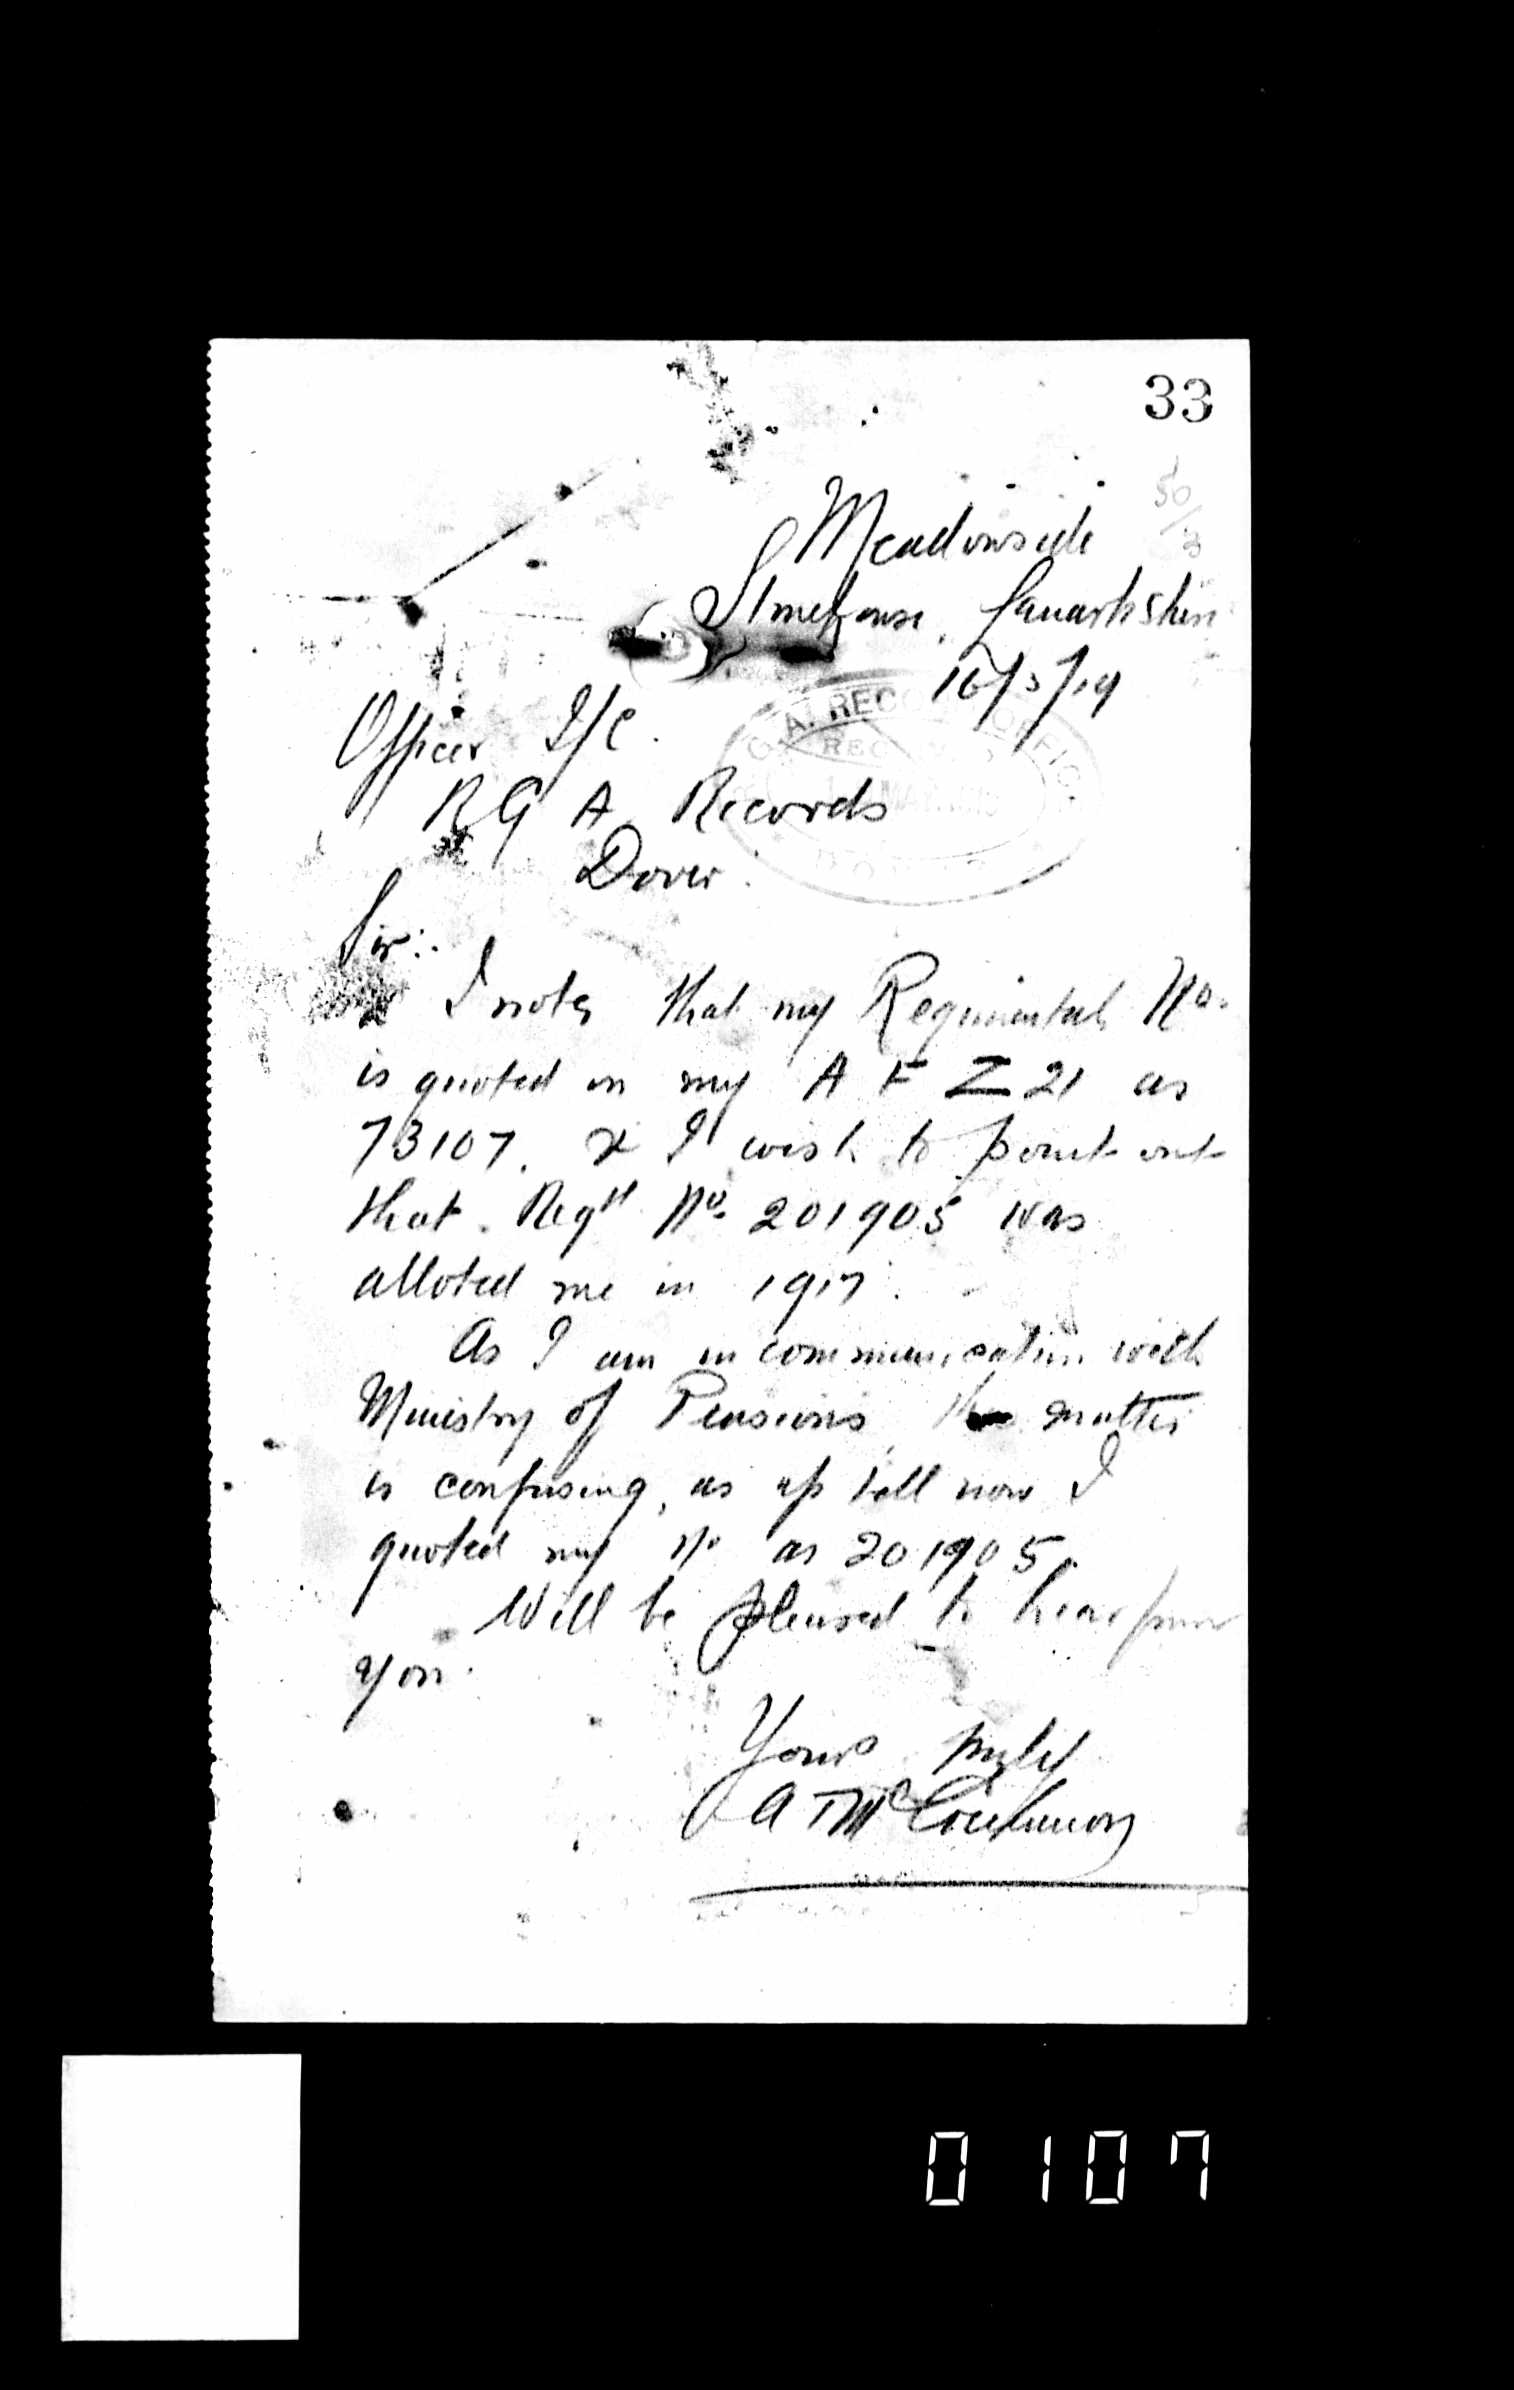 33
50/3
Meadowside
Stonehouse. Lanarkshire
16/5/19
Officer I/C.
R G A Records
Dover.
G. A. RECORD OFFICE
REC
MAY 1919
DOVER
Sir:-
I note, that my Regimental No.
is quoted on my A F Z 21 as
73107. & I wish to point out
that. Regtl No. 201905 was
alloted me in 1917.
As I am in communication with
Ministry of Pensions, the matter
is confusing, as up till now I
quoted my No as 201905.
Will be pleased to hear from
you.
Yours truly
A T Mc
0107